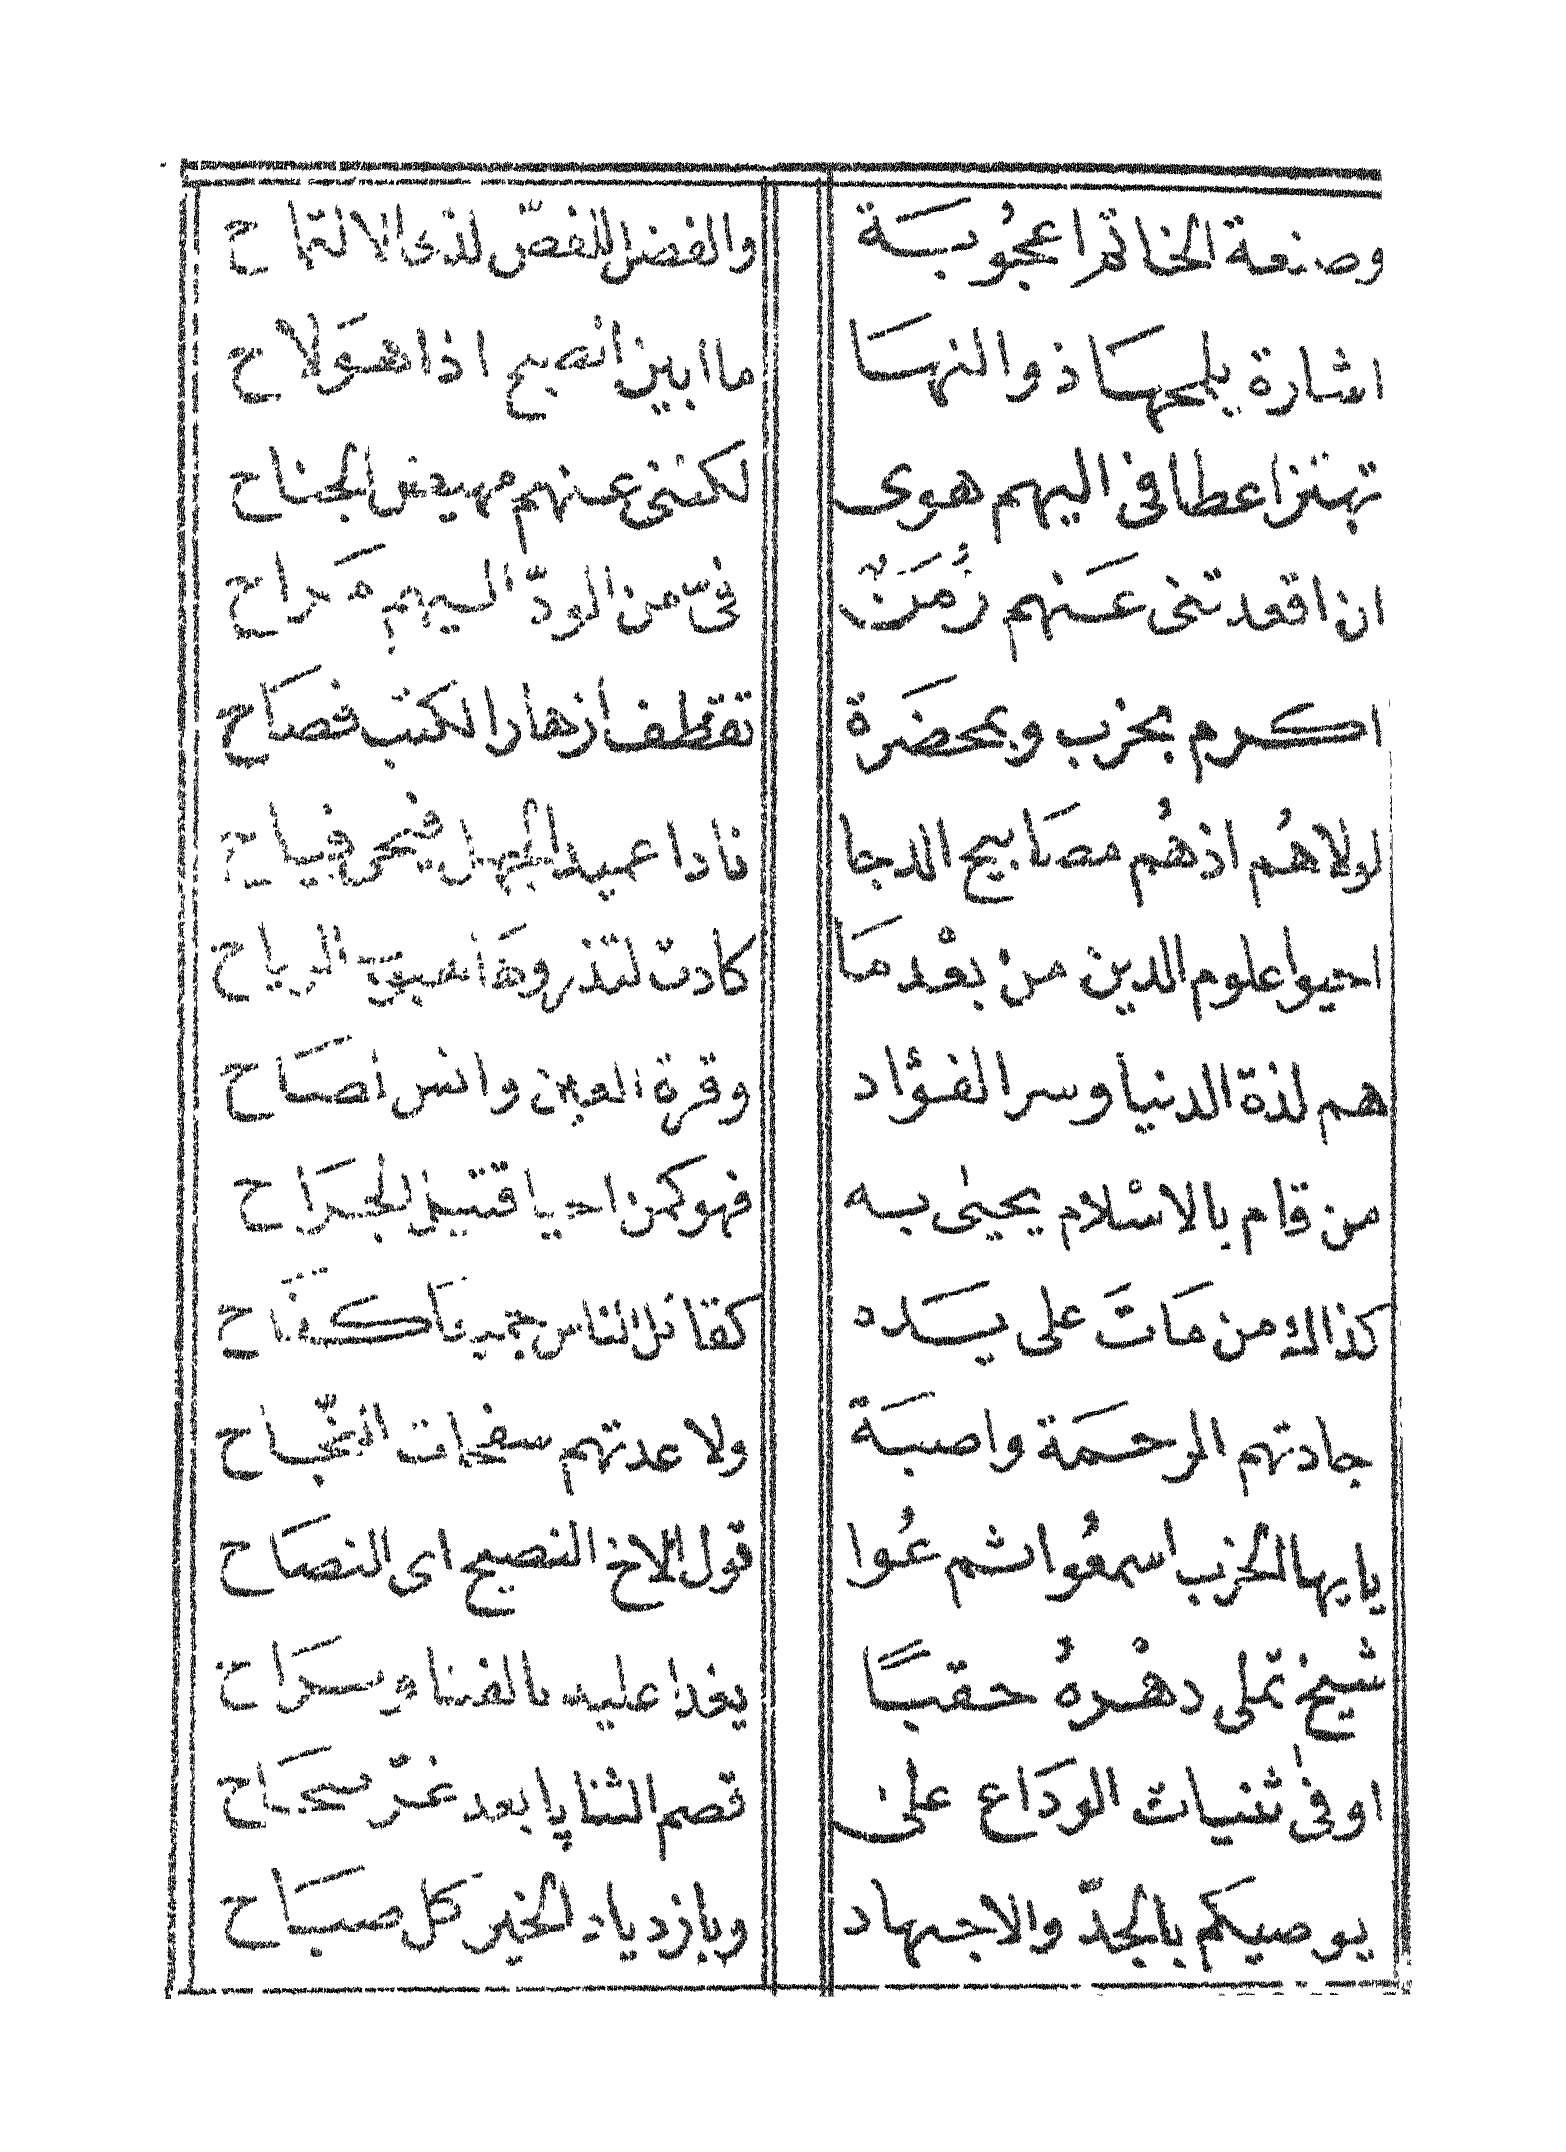 وصنعة الخاتم اعجُوبَة والفضل للفصّ لذى الالتماح
اشارة يلمحهَا ذوا النهَا ما ابين انصبح اذا هوَلاح
تهتز اعطافى اليهم هوى لكننى عنهم مهيض الجناح
ان اقعدتنى عَنهم زُمَنٌ فىّ من الودّ اليهم مَراح
اكرم بحزب وبمحضَرة تقطف ازهار الكتب فصَاح
لولاهُم اذهُم مصَابيح الدجا نادا عميد الجهل فيحى فياح
احيوا علوم الدين منْ بعْدمَا كادت لتذروهَا الرياح
هم لذة الدنيا وسر الفؤاد وقرة العين وانس انصَاح
من قام بالاسْلام يحيىٰ به فهو كمن احيا قتيل الجرَاح
كذالك من مَاتَ على يَده كقاتل الناس جميعَا كفَاح
جادتهم الرحَمة واصبَة ولا عدتهم سفحات النجّاح
يايها الحزب اسمعُوا ثم عُوا قول الاخ النصيح اى النصَاح
شيخ تملى دهْرهُ حقبًا يغدا عليه بالفنا ويسرَاح
اوفىٰ ثنيات الودَاع علىٰ قصم الثنايا بعد غرّ سجَاح
يوصيكم بالجدّ والاجهاد وبازدياد الخير كل صبَاح